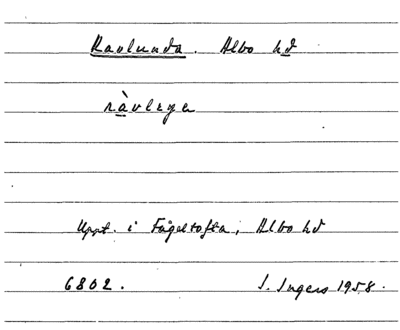 Ravlunda. Albo hd
ràvleṇ
Uppt. i Fågeltofta, Albo hd
6802. I. Ingers 1958.